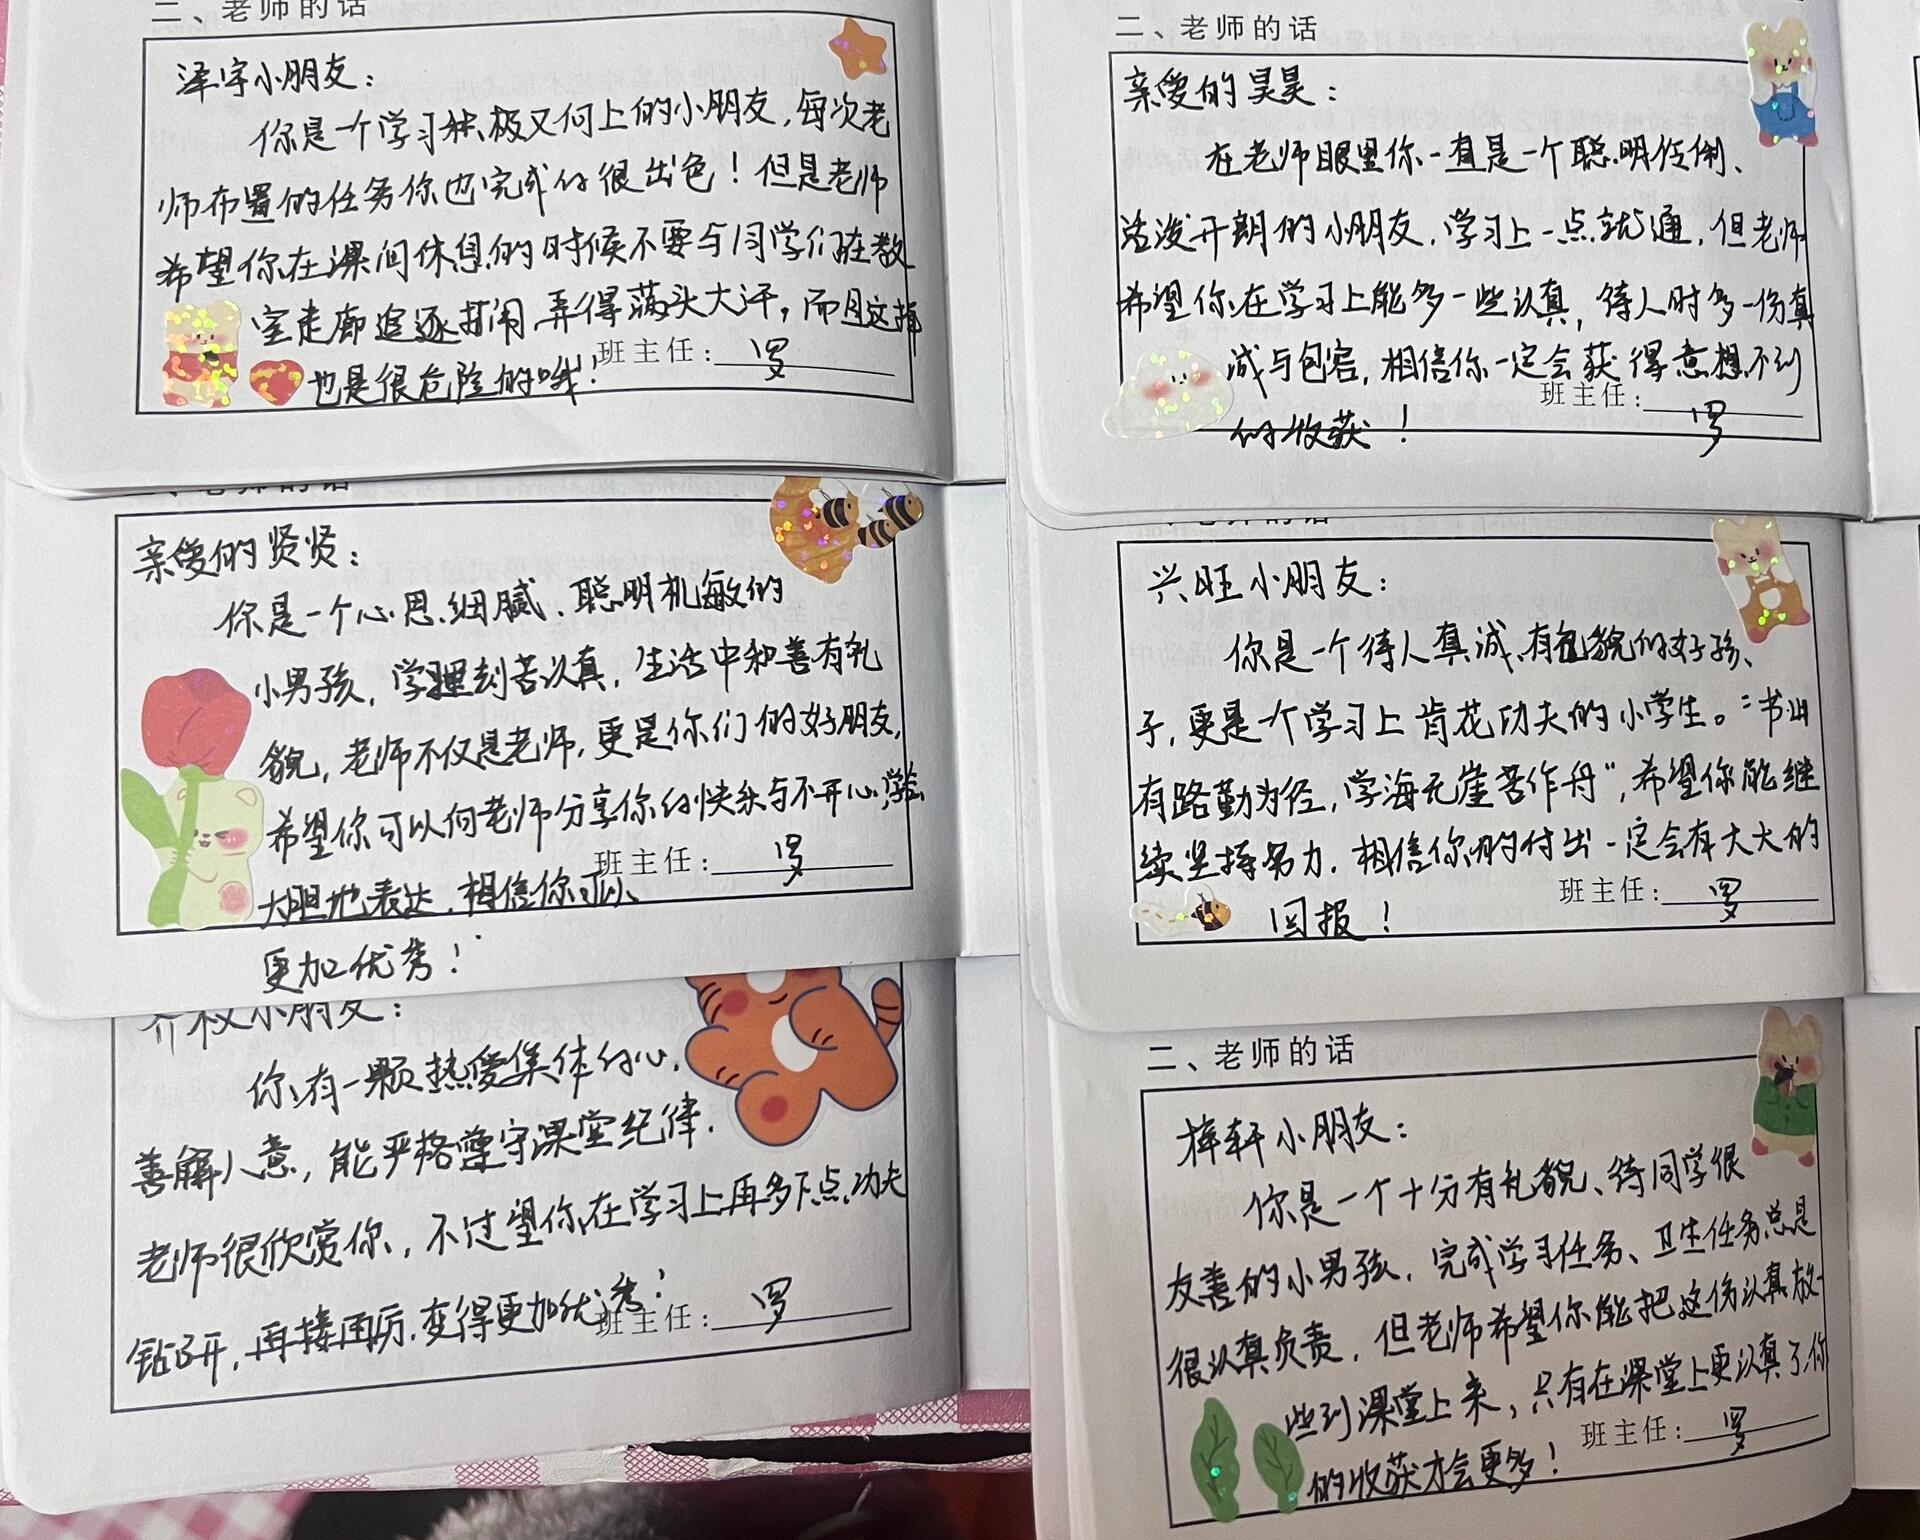 二、老师的话
泽宇小朋友：
你是一个学习积极又向上的小朋友，每次老
师布置的任务你也完成的很出色！但是老师
希望你在课间休息的时候不要与同学们在教
室走廊追逐打闹，弄得满头大汗，而且这样
也是很危险的哦！
班主任：罗
老师的话
亲爱的贤贤：
你是一个心思细腻、聪明机敏的
小男孩，学习刻苦认真，生活中和善有礼
貌，老师不仅是老师，更是你们的好朋友，
希望你可以向老师分享你的快乐与不开心，学会
大胆地表达，相信你可以
更加优秀！
班主任：罗
小朋友：
你有一颗热爱集体的心，
善解人意，能严格遵守课堂纪律，
老师很欣赏你，不过望你在学习上再多下点功夫
钻研，再接再厉，变得更加优秀！
班主任：罗
二、老师的话
亲爱的昊昊：
在老师眼里你一直是一个聪明伶俐、
活泼开朗的小朋友，学习上一点就通，但老师
希望你在学习上能多一些认真，待人时多一份真
诚与包容，相信你一定会获得意想不到
的收获！
班主任：罗
老师的话
兴旺小朋友：
你是一个待人真诚、有礼貌的好孩、
子，更是一个学习上肯花功夫的小学生。“书山
有路勤为径，学海无崖苦作舟”，希望你能继
续坚持努力，相信你的付出一定会有大大的
回报！
班主任：罗
二、老师的话
梓轩小朋友：
你是一个十分有礼貌、待同学很
友善的小男孩，完成学习任务、卫生任务总是
很认真负责，但老师希望你能把这份认真放一
些到课堂上来，只有在课堂上更认真了，你
的收获才会更多！
班主任：罗